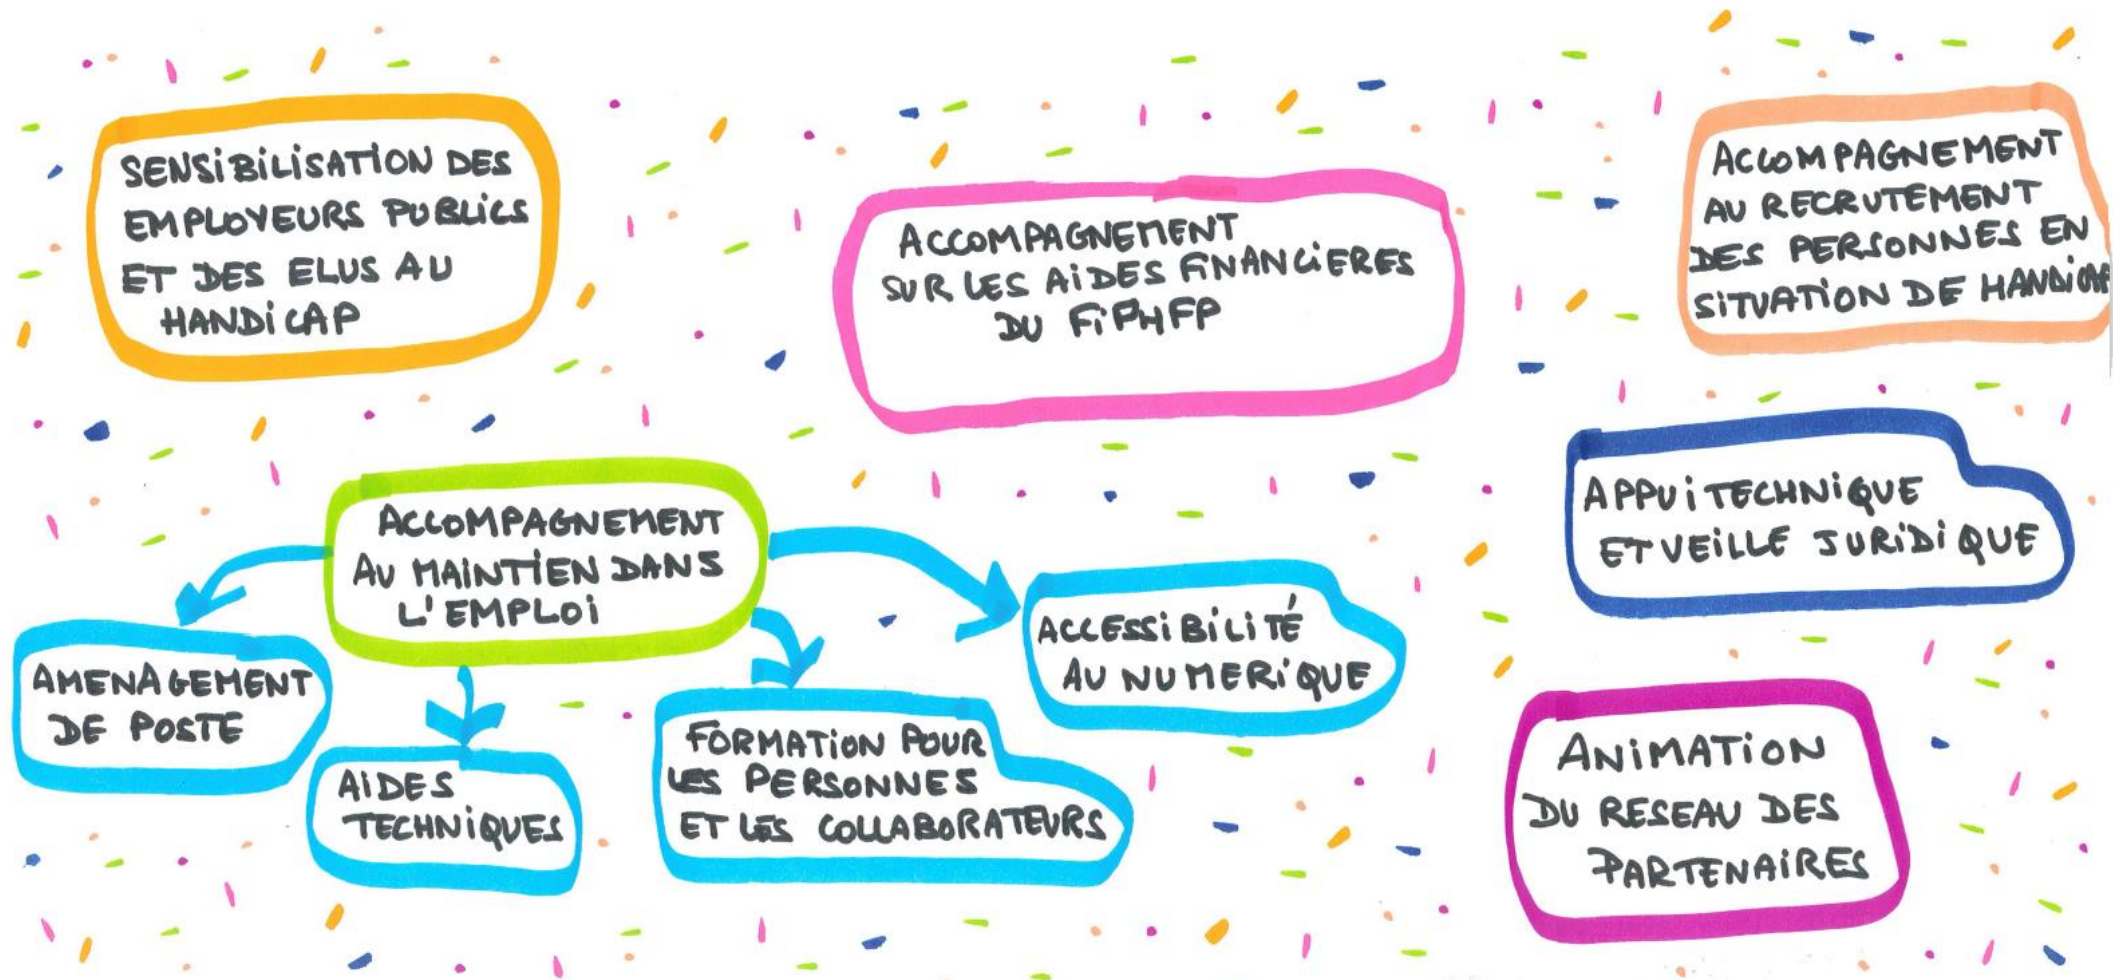 SENSIBILISATION DES
EMPLOYEURS PUBLICS
ET DES ELUS AU
HANDICAP
ACCOMPAGNEMENT
SUR LES AIDES FINANCIERES
DU FIPHFP
ACCOMPAGNEMENT
AU RECRUTEMENT
DES PERSONNES EN
SITUATION DE HANDICAP
ACCOMPAGNEMENT
AU MAINTIEN DANS
L'EMPLOI
APPUI TECHNIQUE
ET VEILLE JURIDIQUE
AMENAGEMENT
DE POSTE
AIDES
TECHNIQUES
FORMATION POUR
LES PERSONNES
ET LES COLLABORATEURS
ACCESSIBILITÉ
AU NUMERIQUE
ANIMATION
DU RESEAU DES
PARTENAIRES